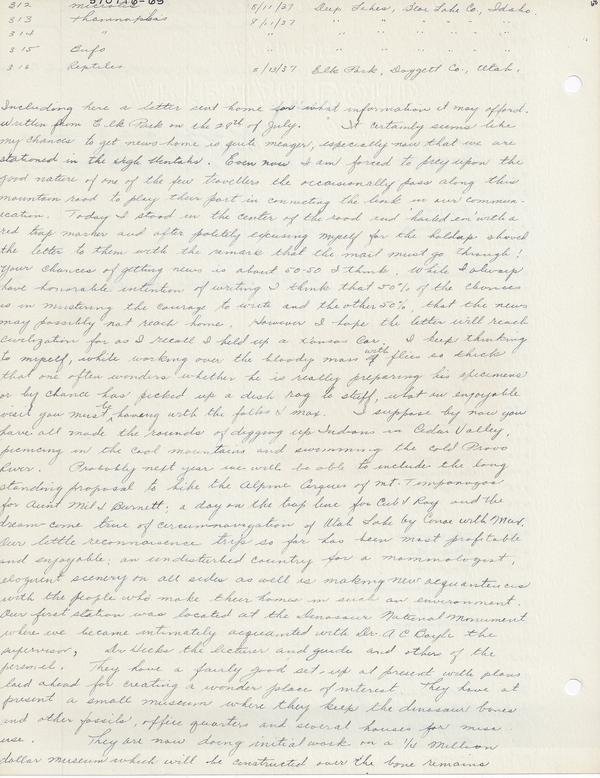 312 Microtus 8/11/37 Deep Lakes, Star Lake Co., Idaho.
313 Thamnophis 8/11/37 " " " " "
314 " " " " " " "
315 Bufo " " " " "
316 Reptiles 8/13/37 Elk Park, Daggett Co., Utah.
Including here a letter sent home for what information it may afford.
Written from Elk Park on the 28th of July. "It certainly seems like
my chances to get news home is quite meager, especially now that we are
stationed in the high Uentahs. Even now I am forced to prey upon the
good nature of one of the few travellers the occasionally pass along this
mountain road to play their part in connecting the link in our commun-
ication. Today I stood in the center of the road and hailed em with a
red trap marker and after politely excusing myself for the holdup shoved
the letter to them with the remark that the mail must go through!
Your chances of getting news is about 50-50 I think. While I always
have honorable intention of writing I think that 50% of the chances
is in mustering the courage to write and the other 50%, that the news
may possibly not reach home. However I hope the letter will reach
civilization for as I recall I held up a Kansas Car. I keep thinking
to myself, while working over the bloody mass with flies so thick
that one often wonders whether he is really preparing his specimens
or by chance has picked up a dish rag to stuff, what an enjoyable
visit you must be having with the folks & max. I suppose by now you
have all made the rounds of digging up Indians in Cedar Valley,
picnicing in the cool mountains and swimming the cold Provo
River. Probably next year we will be able to include the long
standing proposal to hike the Alpine Cirques of Mt. Timpanogos
for Aunt Mil & Burnett; a day on the trap line for Cub & Ray and the
dream come true of circumnavigation of Utah Lake by Canoe with Max.
Our little reconnaisense trip so far has been most profitable
and enjoyable; an undisturbed country for a mammologist,
eloquent scenery on all sides as well is making new acquantences
with the people who make their homes in such an environment.
Our first station was located at the Dinosaur National Monument
where we became intimately acquanted with Dr. A C Boyle the
supervisor, Dr Hecks the lecturer and guide and other of the
personel. They have a fairly good set-up at present with plans
laid ahead for creating a wonder place of interest. They have at
present a small museum where they keep the dinosaur bones
and other fossils, office quarters and several houses for misc.
use. They are now doing initial work on a 1/4 Million
dollar museum which will be constructed over the bone remains